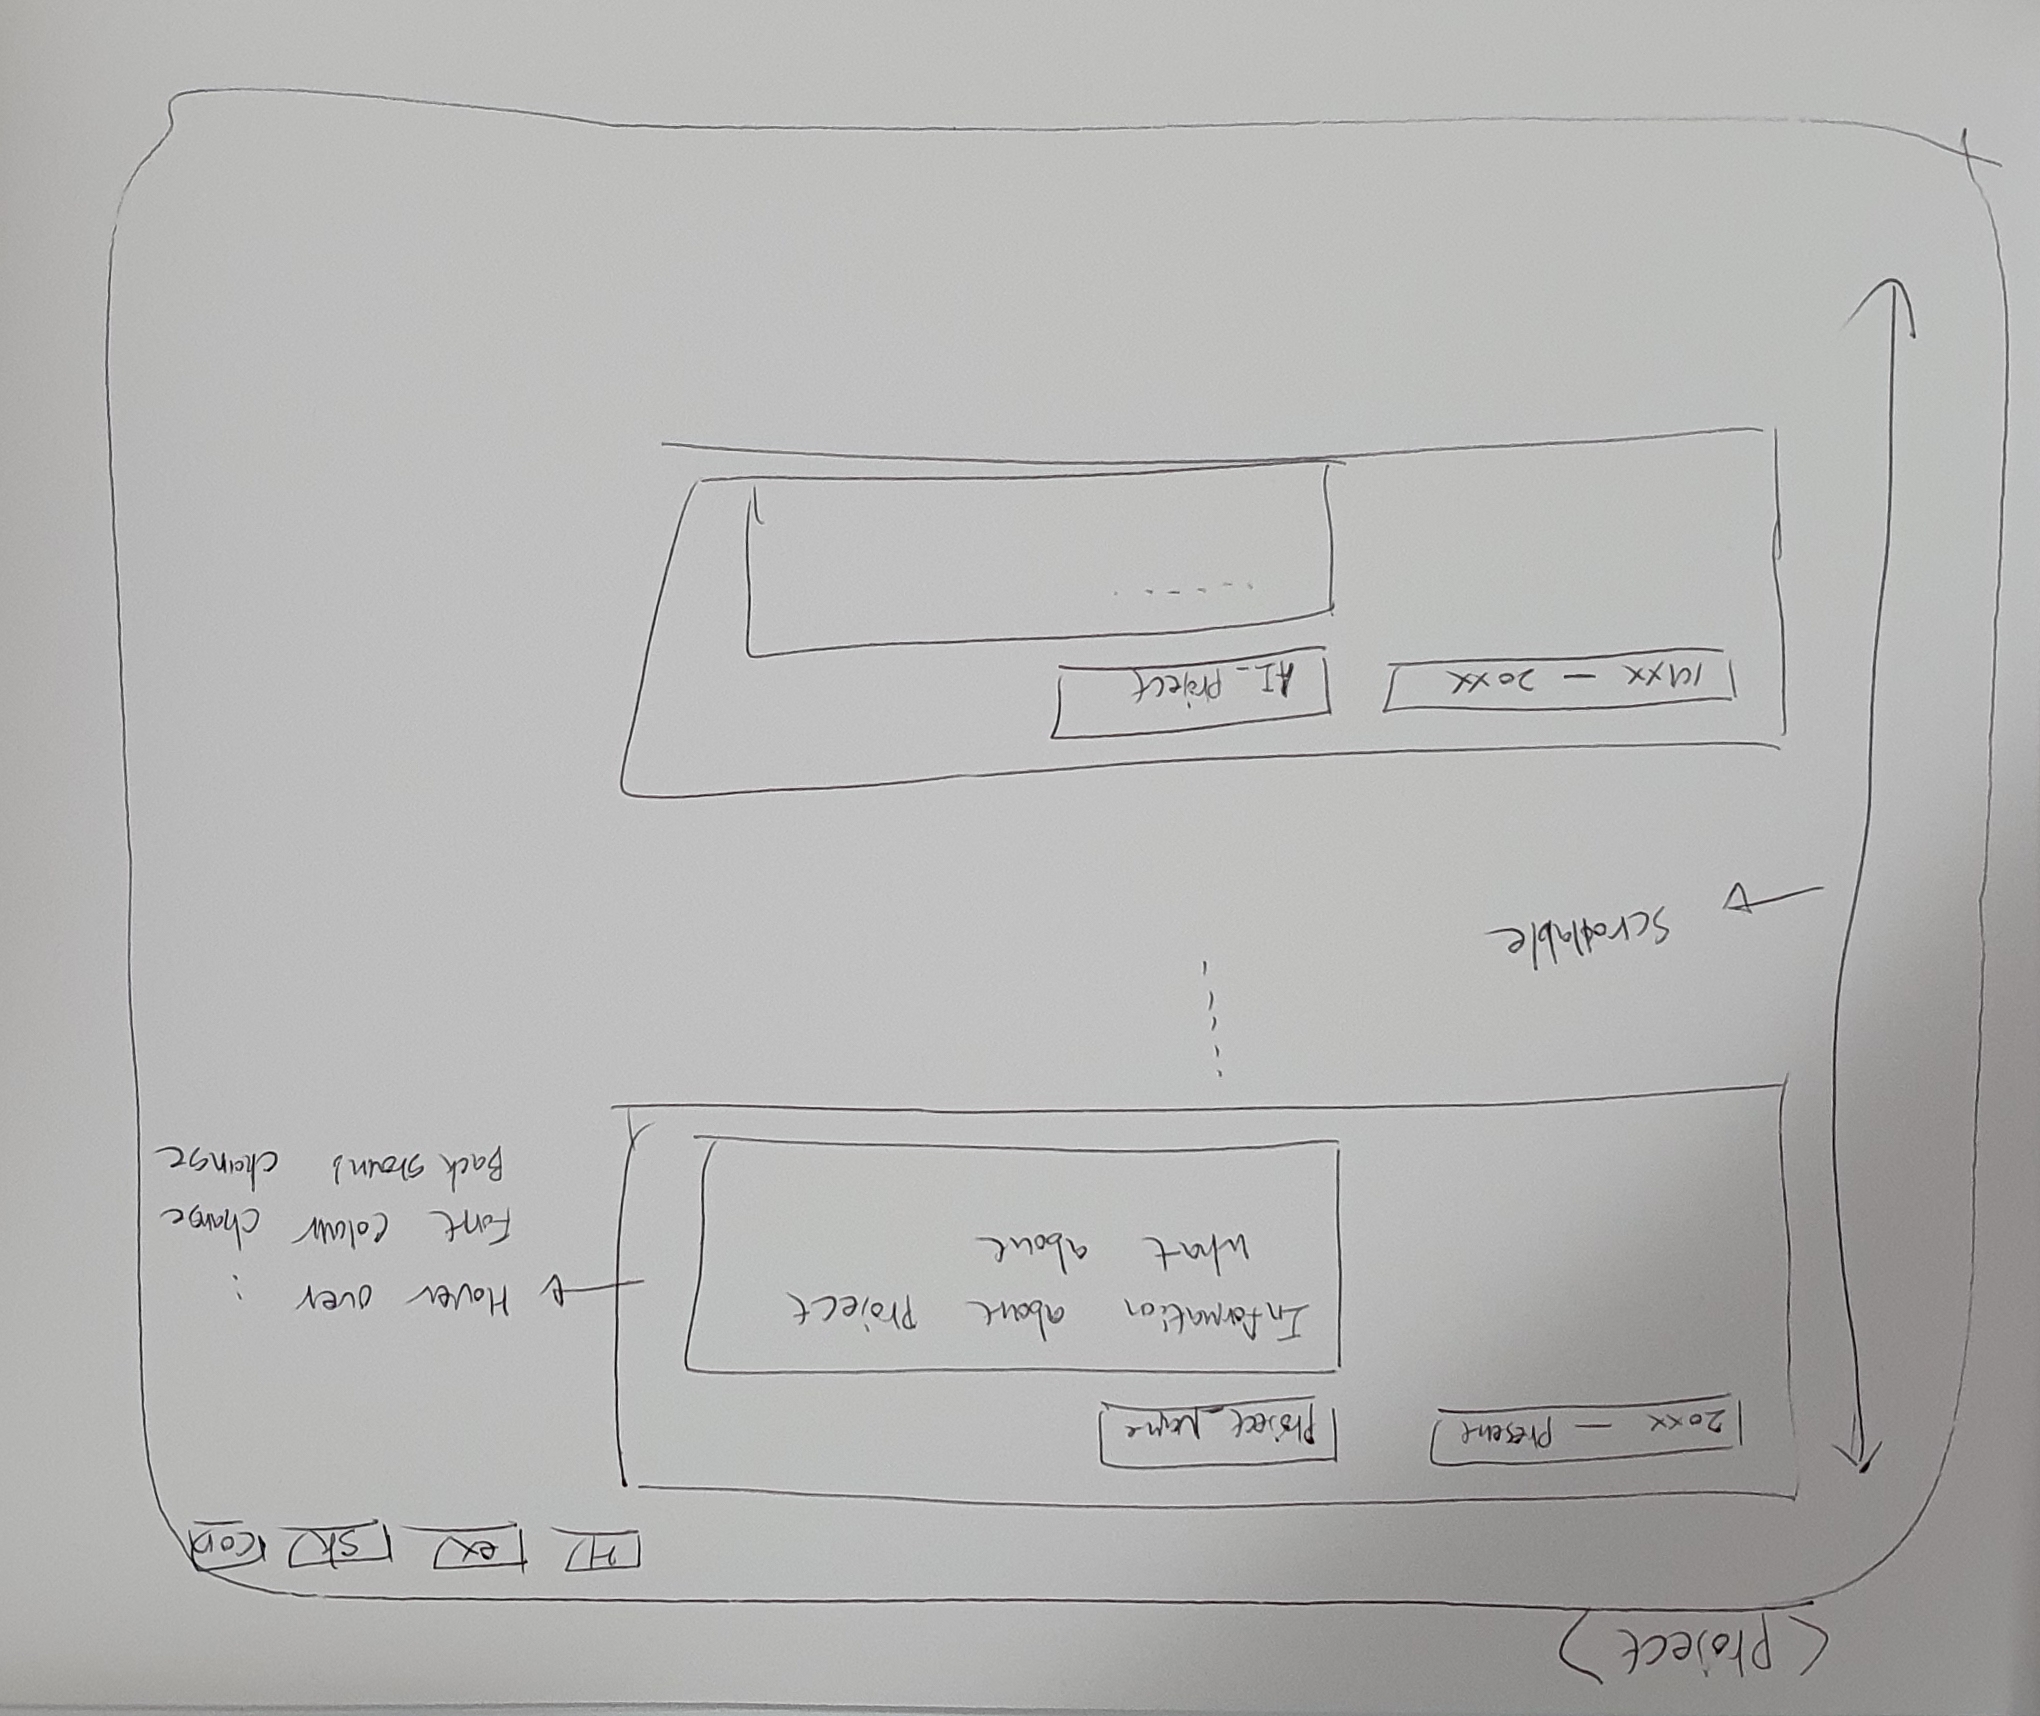 <Project>
H ex sk con
20xx — Present Project_Name
Information about Project
what about
Hover over :
Font colour change
Background change
Scrollable
19xx — 20xx AI_Project